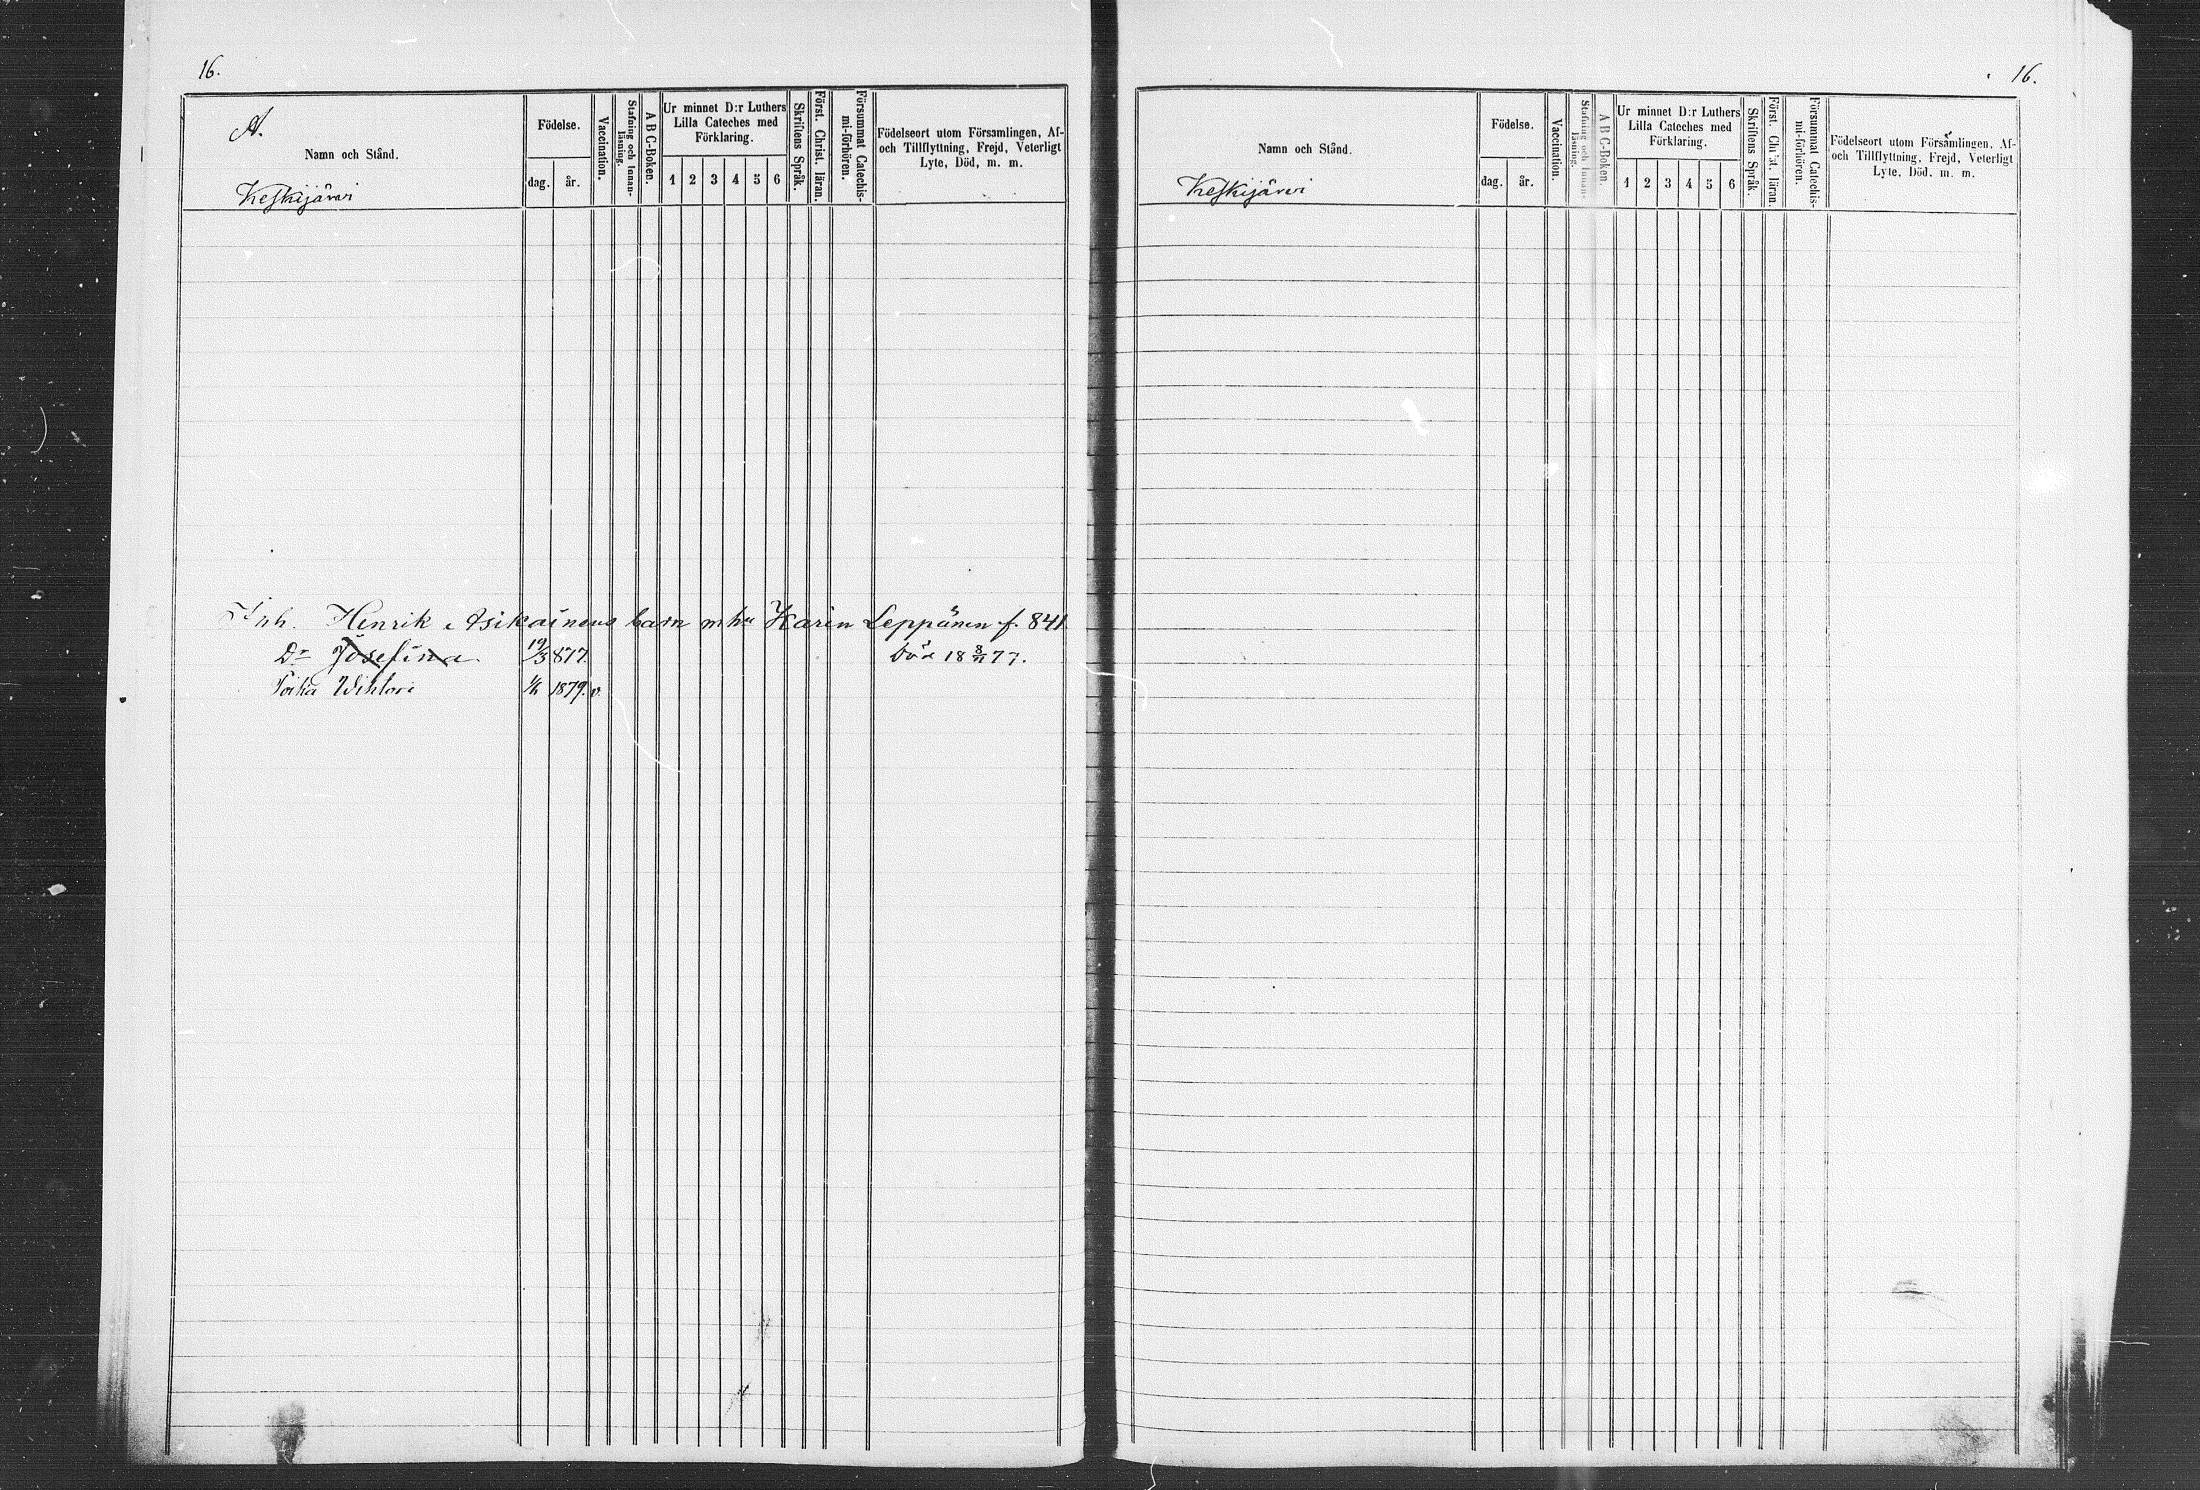 16.
A.
Namn och Stånd.
Keskijärwi
Födelse.
dag. år.
Vaccination.
Stafning och Innan-
läsning.
A B C-Boken.
Ur minnet D:r Luthers
Lilla Cateches med
Förklaring.
1 2 3 4 5 6
Skriftens Språk.
Först. Christ. läran.
Försummat Catechis-
mi-förhören.
Födelseort utom Församlingen, Af-
och Tillflyttning, Frejd, Veterligt
Lyte, Död, m. m.
Inh. Henrik Asikainens barn m hu Karin Leppänen f. 841
Dr Josefina 19/3 877. Död 18 8/11 77.
Poika Wihtori 1879. v.
16.
Namn och Stånd.
Keskijärwi
Födelse.
dag. år.
Vaccination.
Stafning och Innan-
läsning.
A B C-Boken.
Ur minnet D:r Luthers
Lilla Cateches med
Förklaring.
1 2 3 4 5 6
Skriftens Språk.
Först. Christ. läran.
Försummat Catechis-
mi-förhören.
Födelseort utom Församlingen, Af-
och Tillflyttning, Frejd, Veterligt
Lyte, Död. m. m.